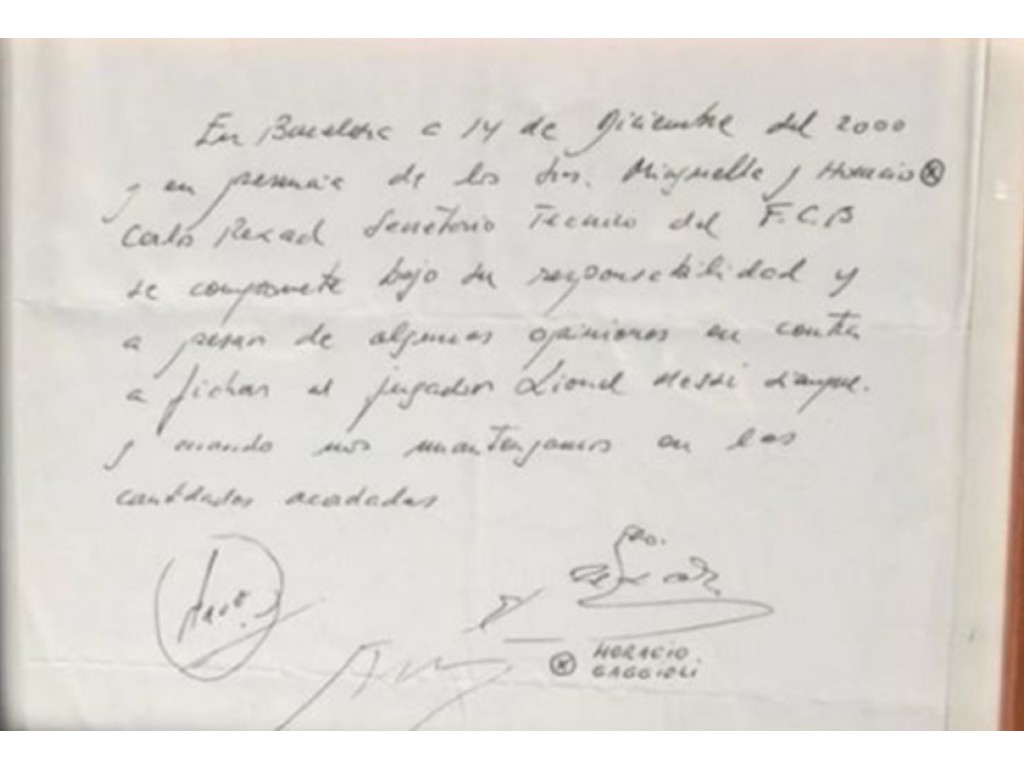 En Barcelona a 14 de Diciembre del 2000
y en presencia de los Srs. Minguella y Horacio
Carlos Rexach Secretario Tecnico del F.C.B
se compromete bajo su responsabilidad y
a pesar de algunas opiniones en contra
a fichar al jugador Lionel Messi siempre
y cuando nos mantengamos en las
cantidades acordadas
HORACIO
GAGGIOLI